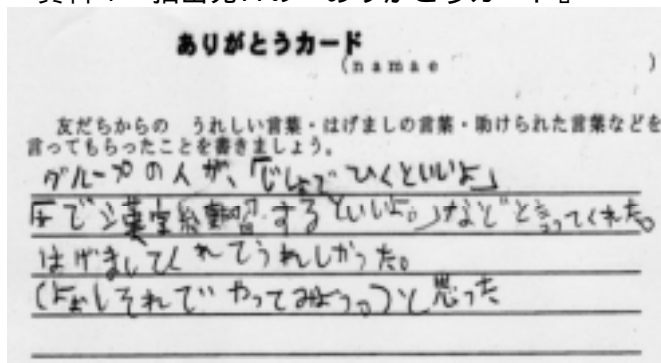 ありがとうカード
(namae )
友だちからの うれしい言葉・はげましの言葉・助けられた言葉などを
言ってもらったことを書きましょう。
グループの人が、「じしょでひくといいよ」
で漢字練習するといいよ。」などと言ってくれた。
はげましてくれてうれしかった。
(よぉしそれでやってみよう。)と思った